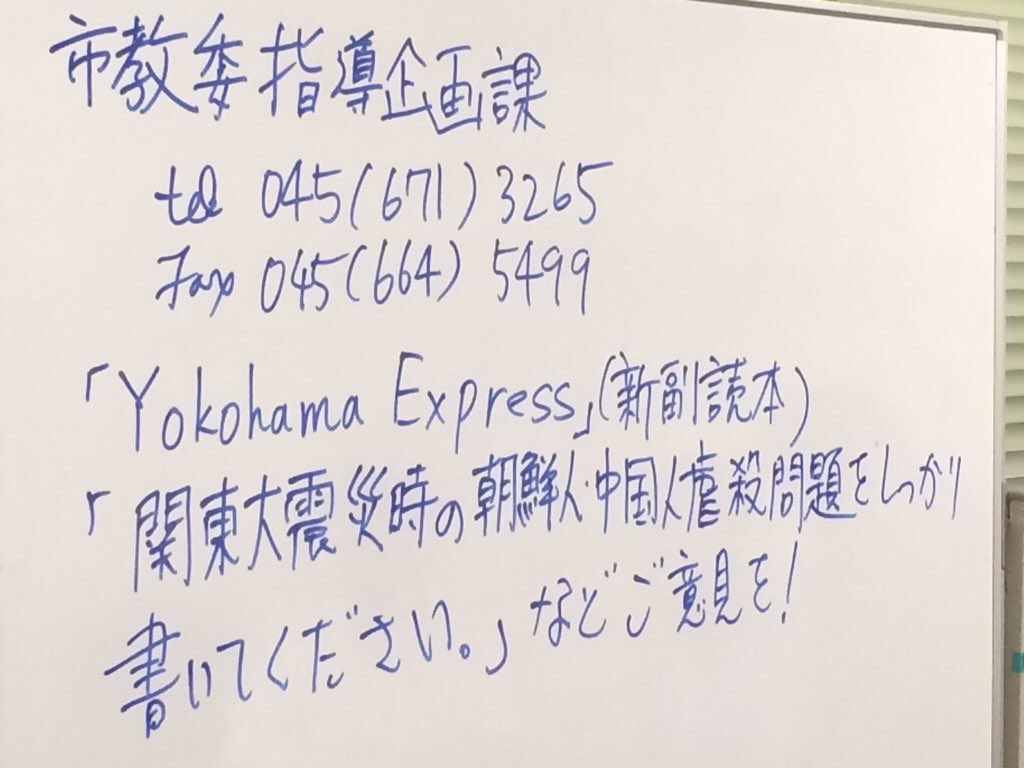 市教委指導企画課
tel 045(671)3265
Fax 045(664)5499
「Yokohama Express」(新副読本)
「関東大震災時の朝鮮人・中国人虐殺問題をしっかり
書いてください。」などご意見を!